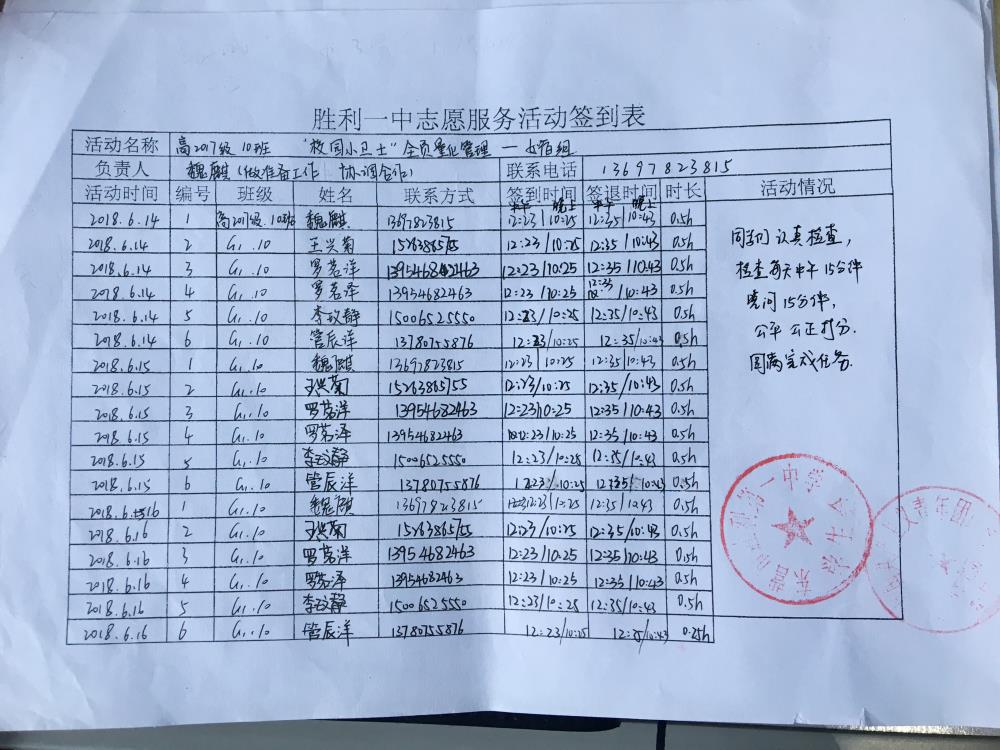 胜利一中志愿服务活动签到表
活动名称 高2017级10班 "校园小卫士"全员量化管理 — 女宿组
负责人 魏麒(做准备工作 协调合作) 联系电话 13697823815
活动时间 编号 班级 姓名 联系方式 签到时间 签退时间 时长 活动情况
中午 晚上 中午 晚上
2018.6.14 1 高2017级.10班 魏麒 13697823815 12:23/10:25 12:35/10:43 0.5h
2018.6.14 2 G1.10 王兴菊 15263865755 12:23/10:25 12:35/10:43 0.5h
2018.6.14 3 G1.10 罗茗洋 13954682463 12:23/10:25 12:35/10:43 0.5h
2018.6.14 4 G1.10 罗茗泽 13954682463 12:23/10:25 12:35/10:43 0.5h
2018.6.14 5 G1.10 李玟静 15006525550 12:23/10:25 12:35/10:43 0.5h
2018.6.14 6 G1.10 管辰洋 13780755876 12:23/10:25 12:35/10:43 0.5h
2018.6.15 1 G1.10 魏麒 13697823815 12:23/10:25 12:35/10:43 0.5h
2018.6.15 2 G1.10 王兴菊 15263865755 12:23/10:25 12:35/10:43 0.5h
2018.6.15 3 G1.10 罗茗洋 13954682463 12:23/10:25 12:35/10:43 0.5h
2018.6.15 4 G1.10 罗茗泽 13954682463 12:23/10:25 12:35/10:43 0.5h
2018.6.15 5 G1.10 李玟静 15006525550 12:23/10:25 12:35/10:43 0.5h
2018.6.15 6 G1.10 管辰洋 13780755876 12:23/10:25 12:35/10:43 0.5h
2018.6.16 1 G1.10 魏麒 13697823815 12:23/10:25 12:35/10:43 0.5h
2018.6.16 2 G1.10 王兴菊 15263865755 12:23/10:25 12:35/10:43 0.5h
2018.6.16 3 G1.10 罗茗洋 13954682463 12:23/10:25 12:35/10:43 0.5h
2018.6.16 4 G1.10 罗茗泽 13954682463 12:23/10:25 12:35/10:43 0.5h
2018.6.16 5 G1.10 李玟静 15006525550 12:23/10:25 12:35/10:43 0.5h
2018.6.16 6 G1.10 管辰洋 13780755876 12:23/10:25 12:35/10:43 0.25h
同学们认真检查,
检查每天中午15分钟
晚间15分钟,
公平公正打分.
圆满完成任务.
第一中学学生会
青年团